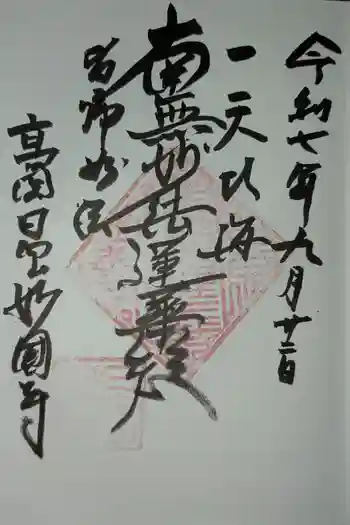 令和七年九月廿二日
一天四海
南無妙法蓮華経
皆帰妙法
妙國寺